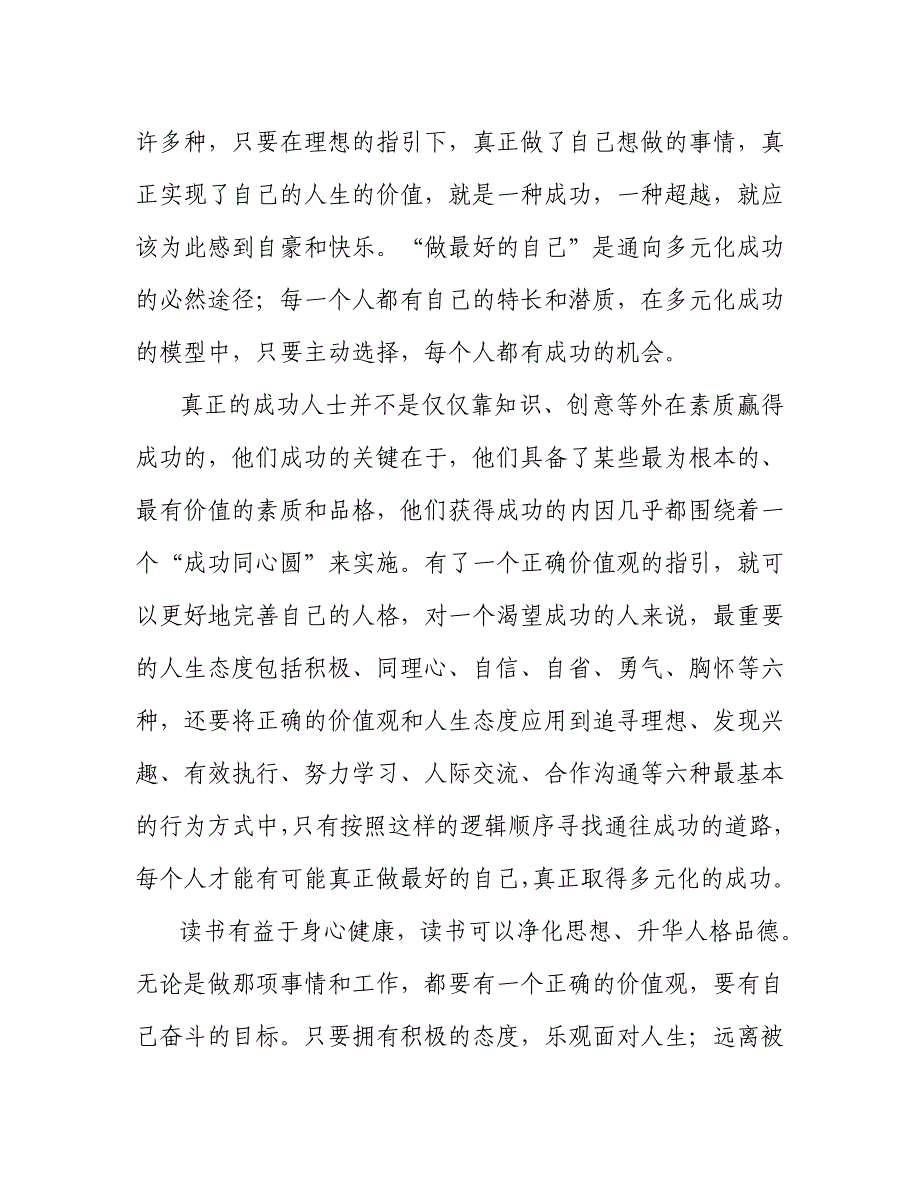 许多种，只要在理想的指引下，真正做了自己想做的事情，真
正实现了自己的人生的价值，就是一种成功，一种超越，就应
该为此感到自豪和快乐。“做最好的自己”是通向多元化成功
的必然途径；每一个人都有自己的特长和潜质，在多元化成功
的模型中，只要主动选择，每个人都有成功的机会。
真正的成功人士并不是仅仅靠知识、创意等外在素质赢得
成功的，他们成功的关键在于，他们具备了某些最为根本的、
最有价值的素质和品格，他们获得成功的内因几乎都围绕着一
个“成功同心圆”来实施。有了一个正确价值观的指引，就可
以更好地完善自己的人格，对一个渴望成功的人来说，最重要
的人生态度包括积极、同理心、自信、自省、勇气、胸怀等六
种，还要将正确的价值观和人生态度应用到追寻理想、发现兴
趣、有效执行、努力学习、人际交流、合作沟通等六种最基本
的行为方式中，只有按照这样的逻辑顺序寻找通往成功的道路，
每个人才能有可能真正做最好的自己，真正取得多元化的成功。
读书有益于身心健康，读书可以净化思想、升华人格品德。
无论是做那项事情和工作，都要有一个正确的价值观，要有自
己奋斗的目标。只要拥有积极的态度，乐观面对人生；远离被